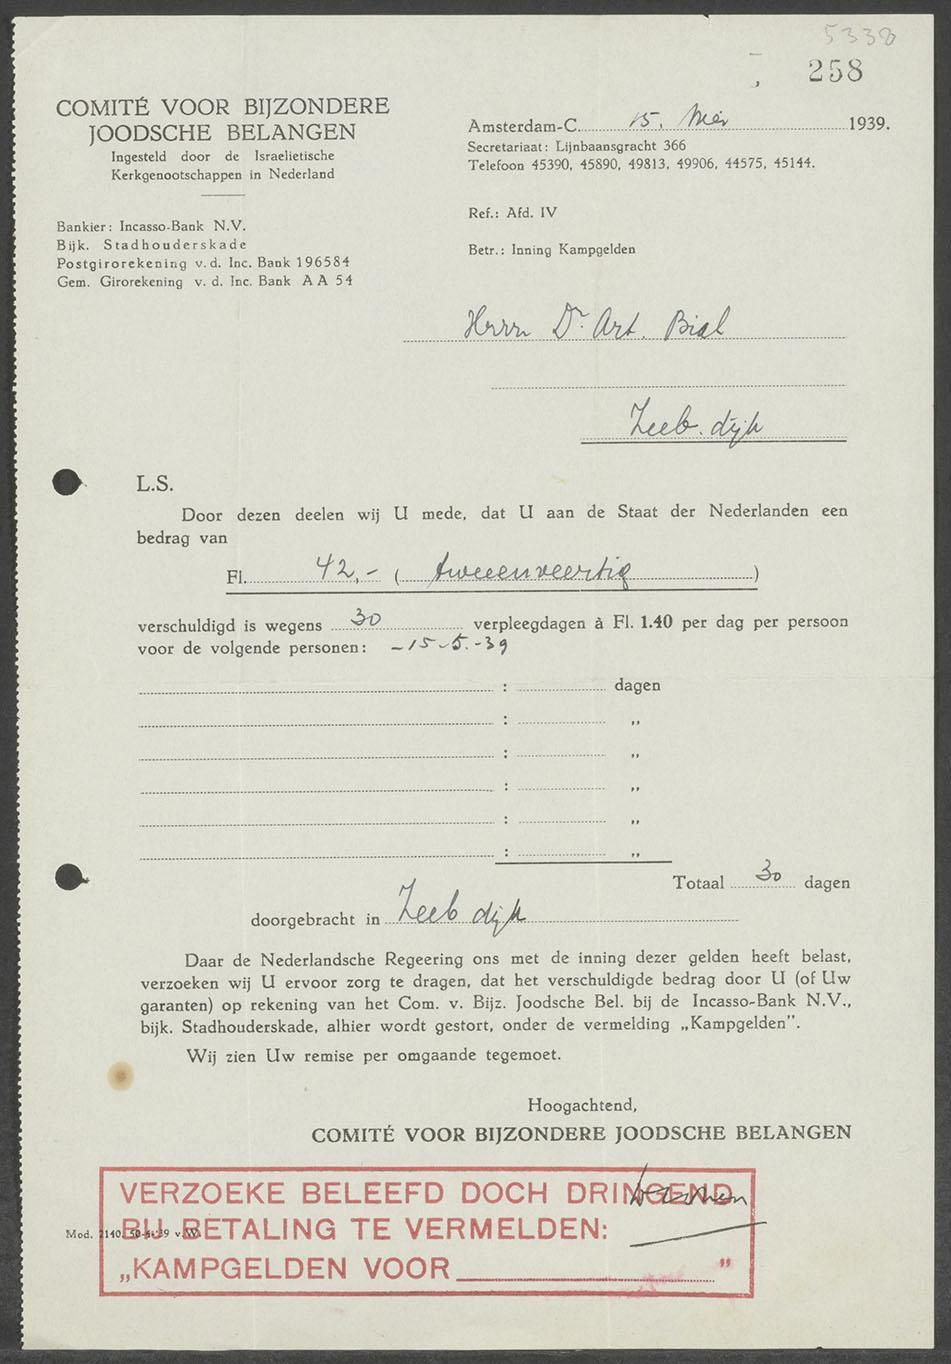 5338
258
COMITÉ VOOR BIJZONDERE
JOODSCHE BELANGEN
Ingesteld door de Israelietische
Kerkgenootschappen in Nederland
Bankier: Incasso-Bank N.V.
Bijk. Stadhouderskade
Postgirorekening v. d. Inc. Bank 196584
Gem. Girorekening v. d. Inc. Bank A A 54
Amsterdam-C. 15. Mei 1939.
Secretariaat: Lijnbaansgracht 366
Telefoon 45390, 45890, 49813, 49906, 44575, 45144.
Ref.: Afd. IV
Betr.: Inning Kampgelden
Herrn Dr. Art. Bial
Zeeb. dijk
L.S.
Door dezen deelen wij U mede, dat U aan de Staat der Nederlanden een
bedrag van
Fl. 42,- ( tweeenveertig )
verschuldigd is wegens 30 verpleegdagen à Fl. 1.40 per dag per persoon
voor de volgende personen: -15-5.-39
: dagen
: „
: „
: „
: „
: „
Totaal 30 dagen
doorgebracht in Zeeb dijk
Daar de Nederlandsche Regeering ons met de inning dezer gelden heeft belast,
verzoeken wij U ervoor zorg te dragen, dat het verschuldigde bedrag door U (of Uw
garanten) op rekening van het Com. v. Bijz. Joodsche Bel. bij de Incasso-Bank N.V.,
bijk. Stadhouderskade, alhier wordt gestort, onder de vermelding „Kampgelden”.
Wij zien Uw remise per omgaande tegemoet.
Hoogachtend,
COMITÉ VOOR BIJZONDERE JOODSCHE BELANGEN
VERZOEKE BELEEFD DOCH DRINGEND
BIJ BETALING TE VERMELDEN:
„KAMPGELDEN VOOR ”
Mod. 2140. '39 v.W.